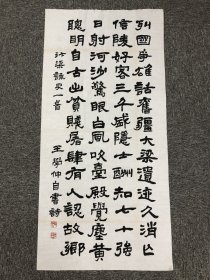 列國爭雄話舊疆大梁遺迹久消亡
信陵好客三千盛隱士酬知七十強
日射河沙驚眼白風吹臺殿覺塵黃
聰明自古出貧賤屠肆有人認故鄉
汴梁雜一首
王學仲自書詩